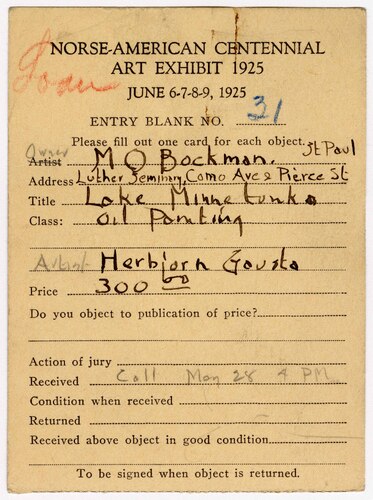 Loan
NORSE-AMERICAN CENTENNIAL
ART EXHIBIT 1925
JUNE 6-7-8-9, 1925
ENTRY BLANK NO. 31
Please fill out one card for each object.
Owner
Artist M O Bockman. St Paul
Address Luther Seminary, Como Ave & Pierce St
Title Lake Minnetonka
Class: Oil Painting
Artist Herbjorn Gausta
Price 300 00
Do you object to publication of price?
Action of jury
Received Call May 28 4 PM.
Condition when received
Returned
Received above object in good condition
To be signed when object is returned.